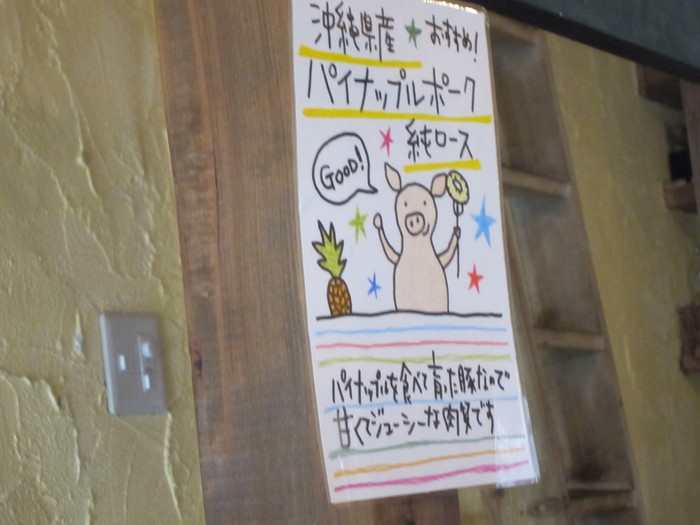 沖縄県産 おすすめ!
パイナップルポーク
純ロース
GOOD!
パイナップルを食べて育った豚なので
甘くてジューシーな肉質です